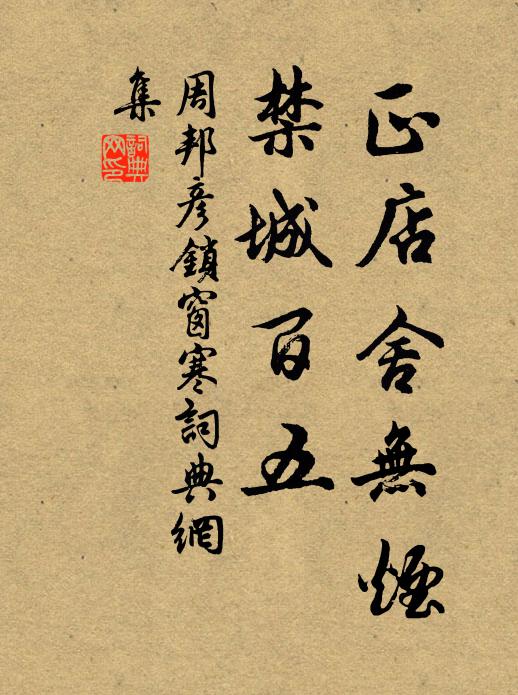 正店舍無煙
禁城百五
周邦彥鎖窗寒詞典網
集
詞典
网印